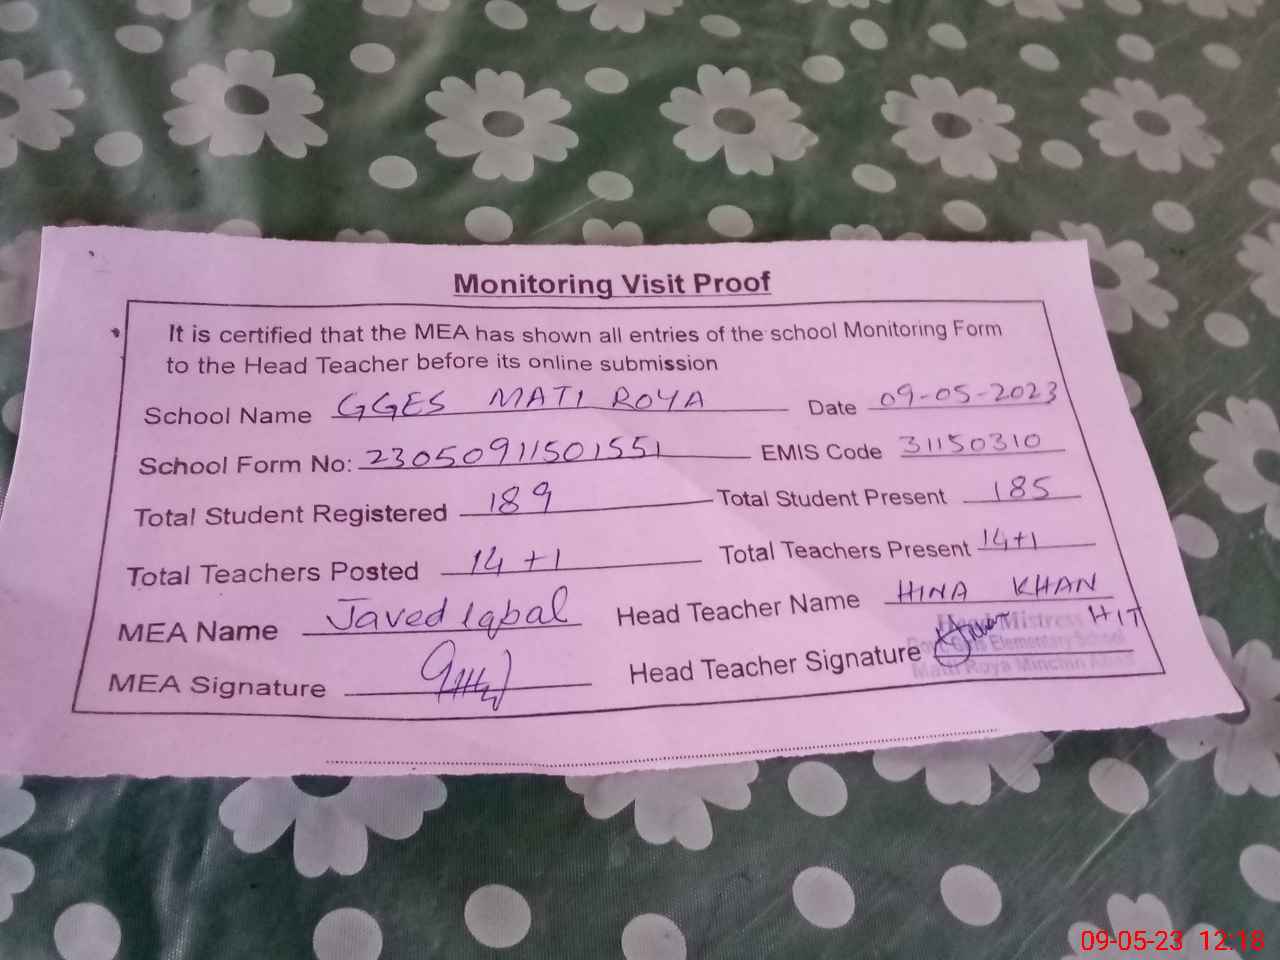 Monitoring Visit Proof
It is certified that the MEA has shown all entries of the school Monitoring Form
to the Head Teacher before its online submission
School Name GGES MATI ROYA Date 09-05-2023
School Form No: 23050911501551 EMIS Code 31150310
Total Student Registered 189 Total Student Present 185
Total Teachers Posted 14+1 Total Teachers Present 14+1
MEA Name Javed Iqbal Head Teacher Name HINA KHAN
H/T
Head Mistress
Govt. Girls Elementary School
MEA Signature Head Teacher Signature
Roya Minchin Abad
09-05-23 12:18